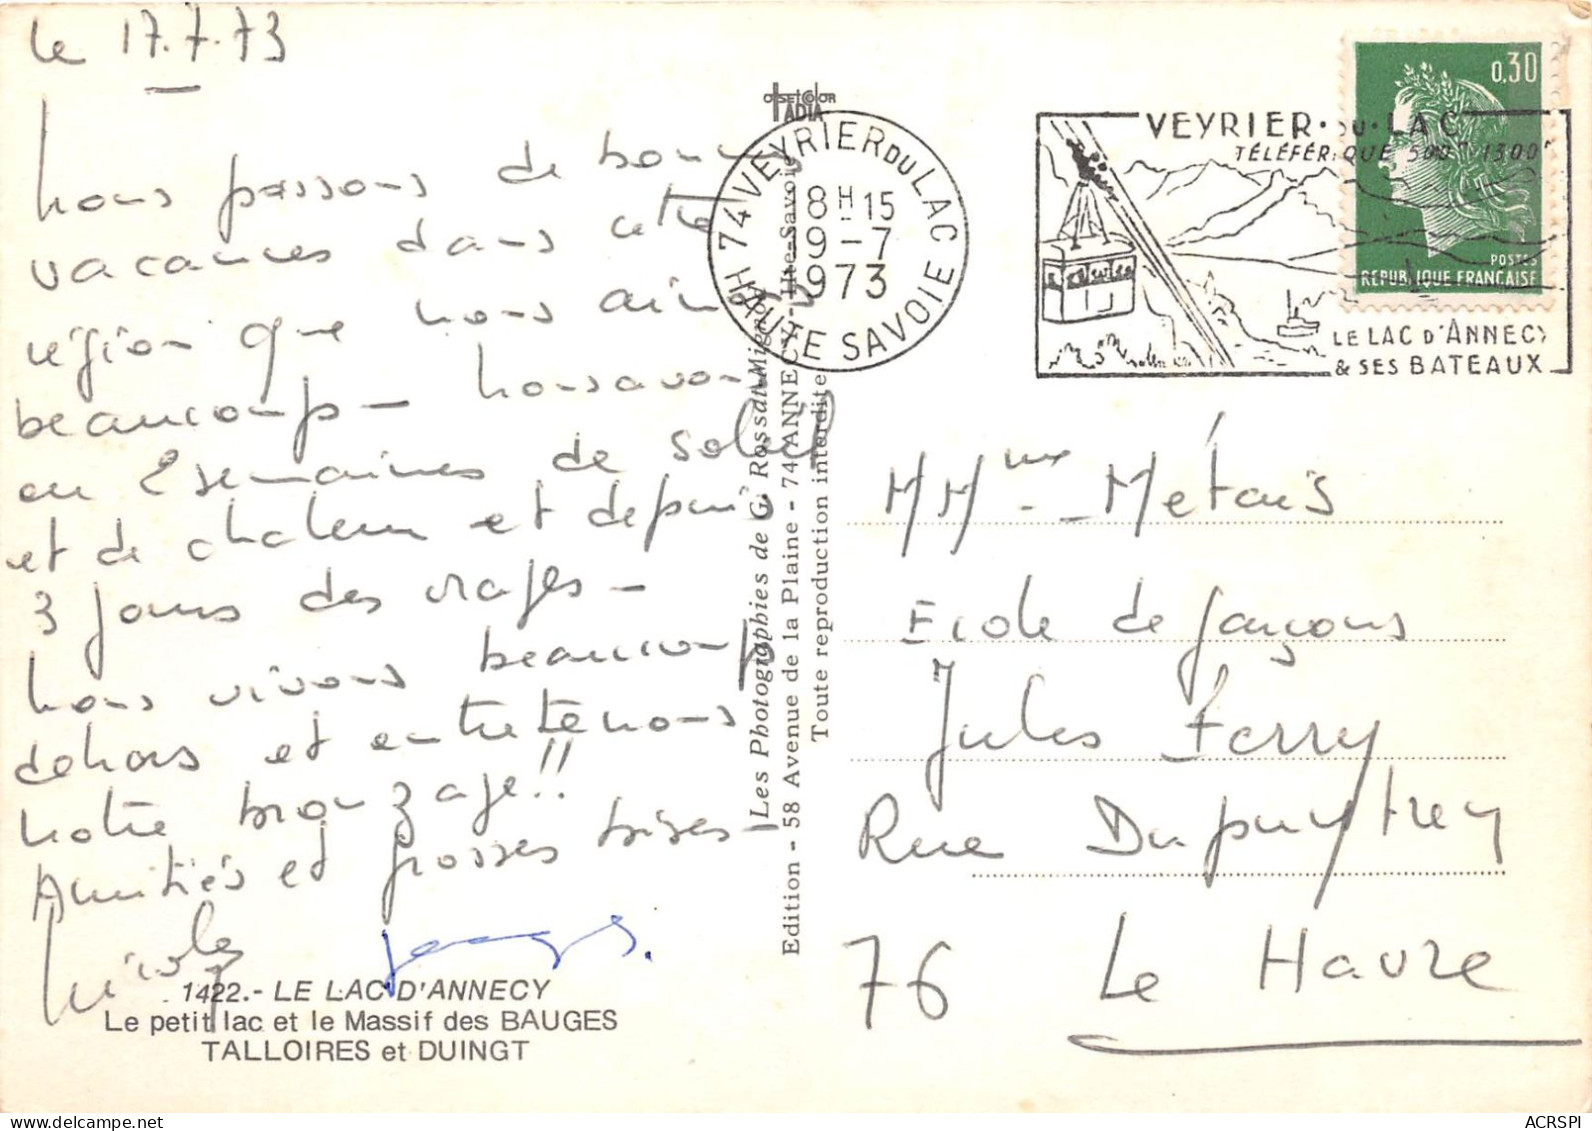 le 17.7.73
Nous passons de bonnes
vacances dans cette
région que nous aimons
beaucoup - nous avons
eu 2 semaines de soleil
et de chaleur et depuis
3 jours des orages -
Nous vivons beaucoup
dehors et entretenons
notre bronzage!!
Amitiés et grosses bises -
Nicole
1422.- LE LAC D'ANNECY
Le petit lac et le Massif des BAUGES
TALLOIRES et DUINGT
offset color
IADIA
Les Photographies de G. Rossat-Mignod
Edition - 58 Avenue de la Plaine - 74 ANNECY - Hte-Savoie
Toute reproduction interdite
74 VEYRIER DU LAC
8H15
9-7
1973
HAUTE SAVOIE
VEYRIER·DU·LAC
TÉLÉFÉRIQUE 500m-1300m
LE LAC D'ANNECY
& SES BATEAUX
0,30
POSTES
REPUBLIQUE FRANÇAISE
MMme - Métais
Ecole de garçons
Jules Ferry
Rue Dupuytrey
76 Le Havre
ACRSPI